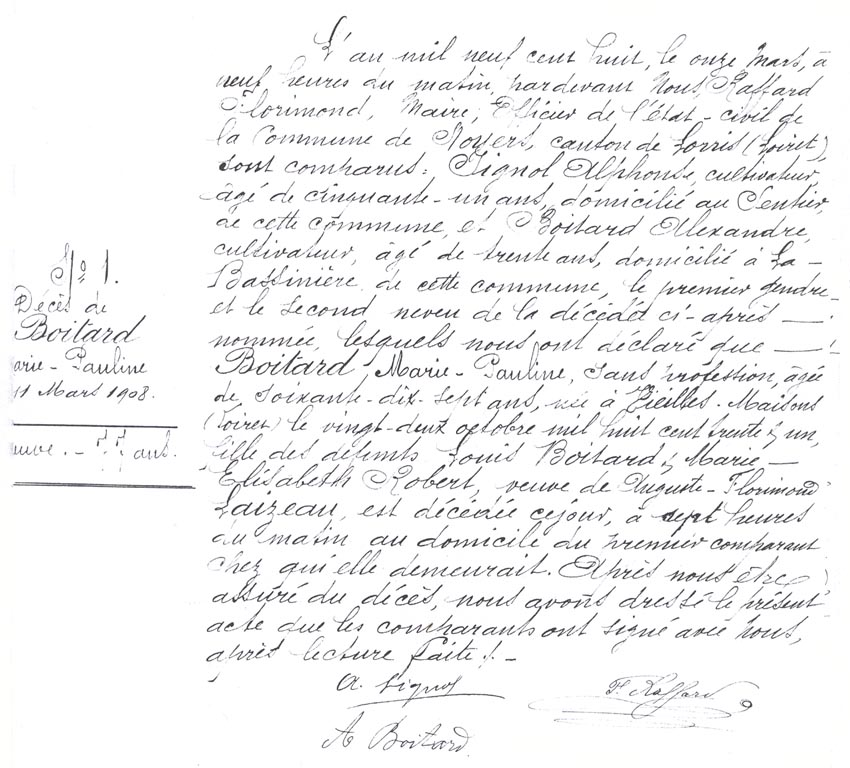 N° 1.
Décès de
Boitard
arie-Pauline
11 Mars 1908.
euve. - 77 ans.
L'an mil neuf cent huit, le onze Mars, à
neuf heures du matin, pardevant Nous, Raffard
Florimond, Maire, Officier de l'état-civil de
la Commune de Noyers, canton de Lorris (Loiret),
sont comparus: Signol Alphonse, cultivateur,
âgé de cinquante-un ans, domicilié au Sentier,
de cette commune, et Boitard Alexandre,
cultivateur, âgé de trente ans, domicilié à La-
Bassinière de cette commune, le premier gendre
et le second neveu de la décédée ci-après
nommée, lesquels nous ont déclaré que
Boitard, Marie-Pauline, sans profession, âgée
de soixante-dix-sept ans, née à Vieilles-Maisons
(Loiret) le vingt-deux octobre mil huit cent trente & un,
fille des défunts Louis Boitard & Marie-
Elisabeth Robert, veuve de Auguste-Florimond
Laizeau, est décédée ce jour, à sept heures
du matin au domicile du premier comparant
chez qui elle demeurait. Après nous être
assuré du décès, nous avons dressé le présent
acte que les comparants ont signé avec Nous,
après lecture faite. -
A. Signol
F. Raffard
A Boitard